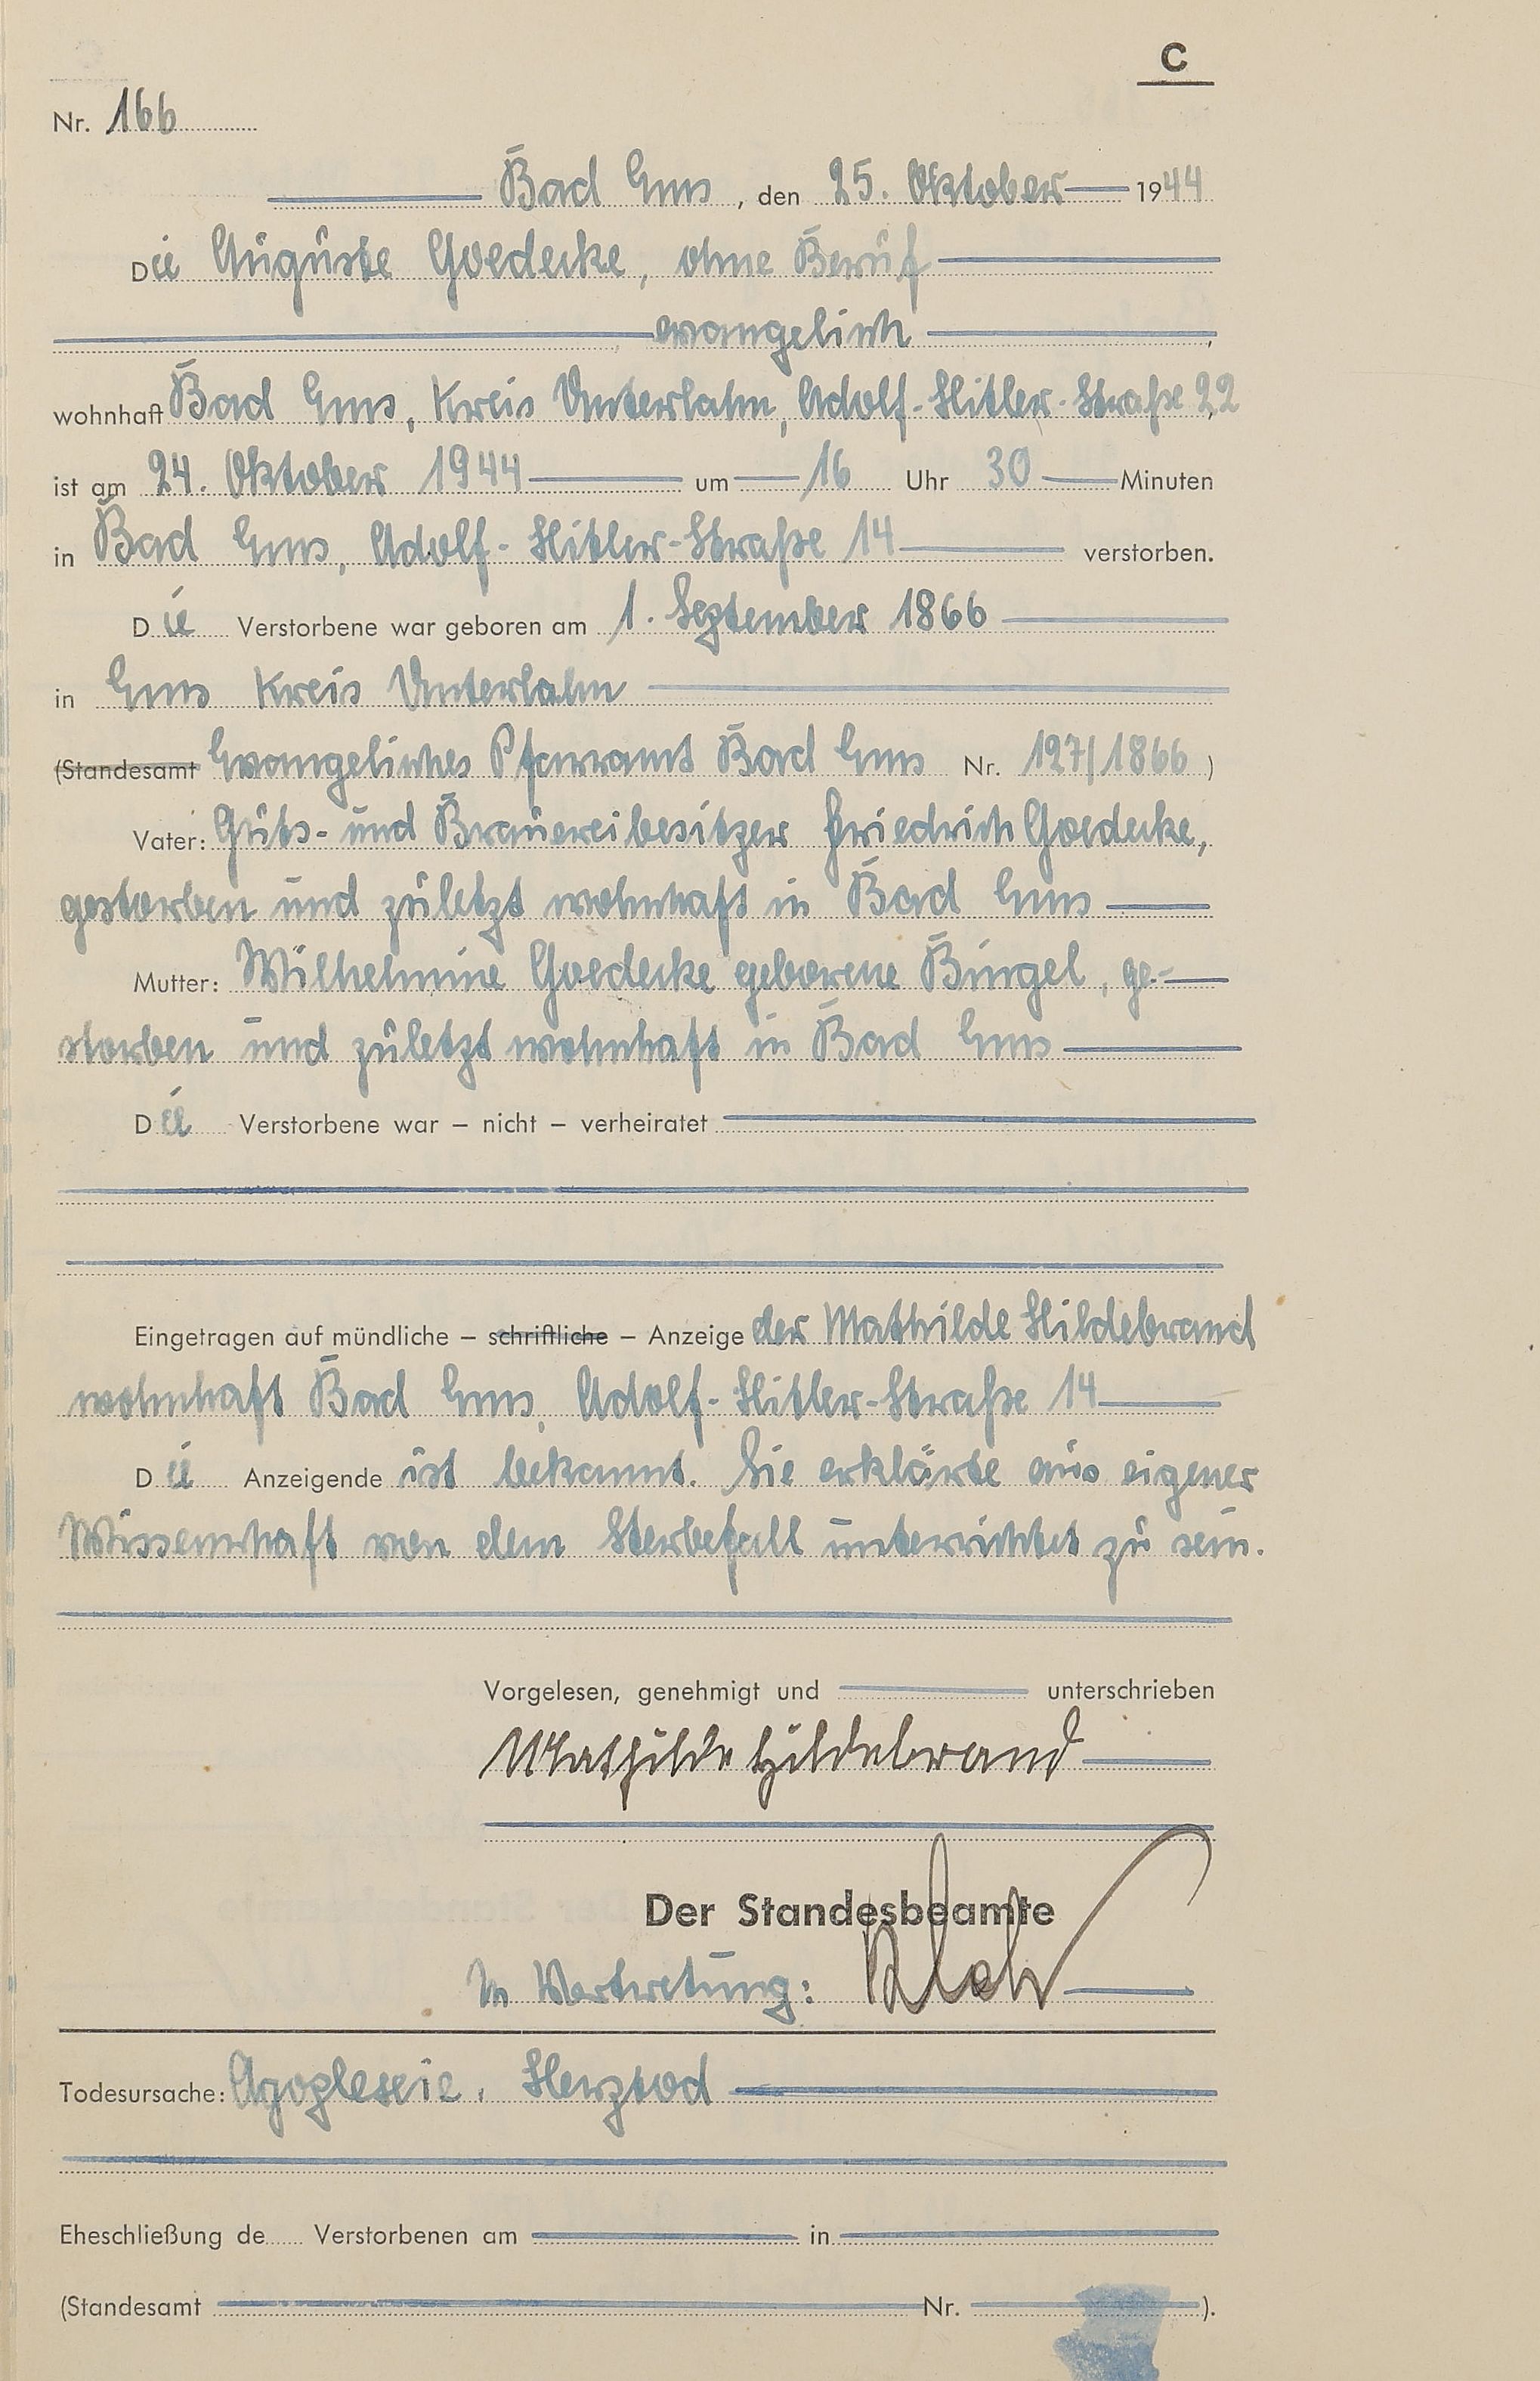 C
Nr. 166
Bad Ems, den 25. Oktober 1944
Die Auguste Goedecke, ohne Beruf
evangelisch,
wohnhaft Bad Ems, Kreis Unterlahn, Adolf-Hitler-Straße 22,
ist am 24. Oktober 1944 um 16 Uhr 30 Minuten
in Bad Ems, Adolf-Hitler-Straße 14 verstorben.
Die Verstorbene war geboren am 1. September 1866
in Ems Kreis Unterlahn
(Standesamt Evangelisches Pfarramt Bad Ems Nr. 127/1866)
Vater: Guts- und Brauereibesitzer Friedrich Goedecke,
gestorben und zuletzt wohnhaft in Bad Ems
Mutter: Wilhelmine Goedecke geborene Bürgel, ge-
storben und zuletzt wohnhaft in Bad Ems
Die Verstorbene war – nicht – verheiratet
Eingetragen auf mündliche – schriftliche – Anzeige der Mathilde Hildebrand
wohnhaft Bad Ems, Adolf-Hitler-Straße 14
Die Anzeigende ist bekannt. Sie erklärte aus eigener
Wissenschaft von dem Sterbefall unterrichtet zu sein.
Vorgelesen, genehmigt und unterschrieben
Mathilde Hildebrand
Der Standesbeamte
In Vertretung:
Todesursache: Apoplexie, Herztod
Eheschließung de Verstorbenen am in
(Standesamt Nr. ).